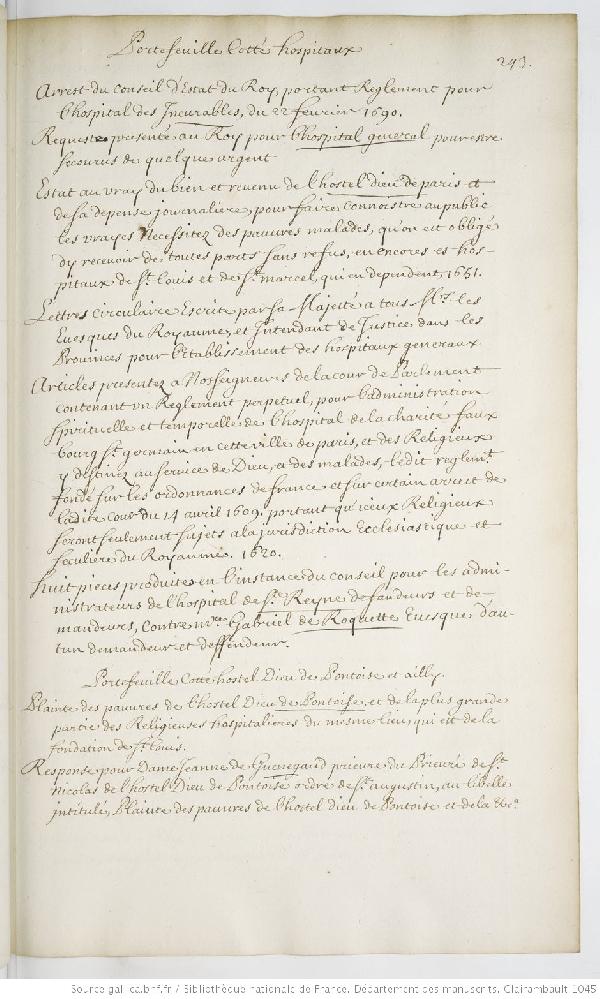 Portefeuille Cotté hospitaux
293.
Arrest du Conseil d'Estat du Roy, portant Reglement pour
l'hospital des Incurables, du 22 fevrier 1690.
Requeste presentée au Roy pour l'hospital general pour estre
secourus de quelque argent
Estat au vray du bien et revenu de l'hostel dieu de paris et
de sa depense journaliere, pour faire connoistre au public
les vrayes Necessitez des pauvres malades, qu'on est obligé
d'y recevoir de toutes parts sans refus, encores es hos-
pitaux de St. Louis et de St. marcel, qui en dependent, 1651.
Lettres circulaire Escrite par sa Majesté a tous Mrs. les
Euesques du Royaume, et Intendant de Justice dans les
Provinces pour l'etablissement des hospitaux generaux
Articles presentez a Nosseigneurs de la cour de Parlement
contenant un Reglement perpetuel, pour l'administration
spirituelle et temporelle de l'hospital de la charité faux
bourg St. germain en cette ville de paris, et des Religieux
y destinez au service de Dieu, et des malades, ledit reglemt.
fondé sur les ordonnances de france et sur certain arrest de
ladite Cour du 14 avril 1609. portant qu'iceux Religieux
seront seulement sujets a la jurisdiction Ecclesiastique et
seculiere du Royaume. 1620.
huit pieces produites en l'instance du conseil pour les admi-
nistrateurs de l'hospital de Ste. Reyne defandeurs et de-
mandeurs, contre mre. Gabriel de Roquette Euesque d'au-
tun demandeur et deffendeur.
Portefeuille Cotté hostel Dieu de Pontoise et ailly.
Plainte des pauvres de l'hostel Dieu de Pontoise, et de la plus grande
partie des Religieuses hospitalieres du mesme lieu, qui est de la
fondation de St. Louis.
Response pour Dame Jeanne de Guenegaud prieure du Prieuré de St.
Nicolas de l'hostel Dieu de Pontoise ordre de St. augustin, au libelle
intitulé, Plainte des pauvres de l'hostel dieu de Pontoise et de la &c.
Source gallica.bnf.fr / Bibliothèque nationale de France. Département des manuscrits. Clairambault 1045